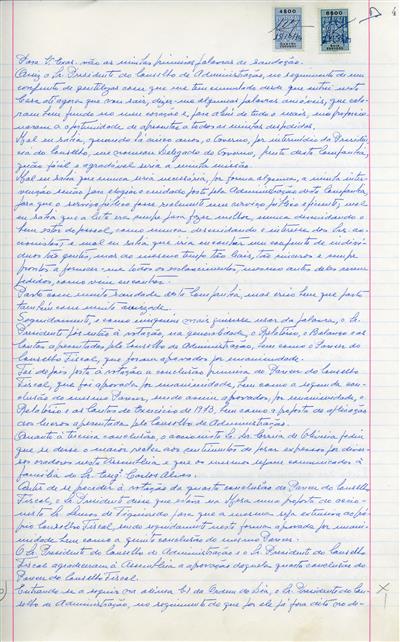 4$00
4$00
Para V. Exas. vão as minhas primeiras palavras de saudação.
Quis o Sr. Presidente do Conselho de Administração, no seguimento de um
conjunto de gentilezas com que me tem cumulado desde que entrei nesta
Casa até agora que vou sair, dizer-me algumas palavras amáveis, que cala-
ram bem fundo no meu coração e, para além de tudo o mais, me proporcio-
naram a oportunidade de apresentar a todos as minhas despedidas.
Mal eu sabia, quando há cinco anos, o Governo, por intermédio da Presidên-
cia do Conselho, me nomeou Delegado do Governo, junto desta Companhia,
quão fácil e agradável seria a minha missão.
Mal eu sabia que nunca seria necessária, por forma alguma, a minha inter-
venção senão para elogiar o cuidado posto pela Administração desta Companhia,
para que o serviço público fosse realmente um serviço público eficiente, mal
eu sabia que a luta era sempre para fazer melhor nunca descuidando o
bem estar do pessoal, como nunca descuidando o interesse dos Srs. ac-
cionistas e mal eu sabia que iria encontrar um conjunto de indiví-
duos tão gentis, mas ao mesmo tempo tão leais, tão sinceros e sempre
prontos a fornecer-me todos os esclarecimentos, mesmo antes deles serem
pedidos, como vim encontrar.
Parto com muita saudade desta Companhia mas creio bem que parto
também com muita amizade.
Seguidamente, e como ninguém mais quisesse usar da palavra, o Sr.
Presidente pôs então à votação, na generalidade, o Relatório, o Balanço e as
Contas apresentadas pelo Conselho de Administração, bem como o Parecer do
Conselho Fiscal, que foram aprovados por unanimidade.
Foi depois posta à votação a conclusão primeira do Parecer do Conselho
Fiscal, que foi aprovada por unanimidade, bem como a segunda con-
clusão do mesmo Parecer, sendo assim aprovados, por unanimidade, o
Relatório e as Contas do Exercício de 1973, bem como a proposta de aplicação
dos lucros apresentada pelo Conselho de Administração.
Quanto à terceira conclusão, o accionista Sr. Dr. Correia de Oliveira pediu
que se desse o maior realce aos sentimentos de pesar expressos por diver-
sos oradores nesta Assembleia e que os mesmos sejam comunicados à
família do Sr. Eng.º Carlos Alves.
Antes de se proceder à votação da quarta conclusão do Parecer do Conselho
Fiscal, o Sr. Presidente disse que estava na Mesa uma proposta do accio-
nista Sr. Lemos de Figueiredo para que a mesma seja extensiva ao pró-
prio Conselho Fiscal, sendo seguidamente nesta forma aprovada por unani-
midade bem como a quinta conclusão do mesmo Parecer.
O Sr. Presidente do Conselho de Administração e o Sr. Presidente do Conselho
Fiscal agradeceram à Assembleia a aprovação daquela quarta conclusão do
Parecer do Conselho Fiscal.
Entrando-se a seguir na alínea b) da Ordem do Dia, o Sr. Presidente do Con-
selho de Administração, no seguimento do que por ele já fora dito no de-